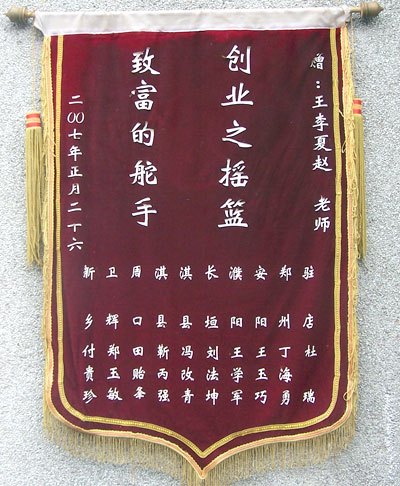 赠：王李夏赵 老师
创业之摇篮
致富的舵手
驻店杜瑞
郑州丁海勇
安阳王玉巧
濮阳王学军
长垣刘法坤
淇县冯改青
淇县靳丙强
周口田贻条
卫辉郑玉敏
新乡付貴珍
二00七年正月二十六